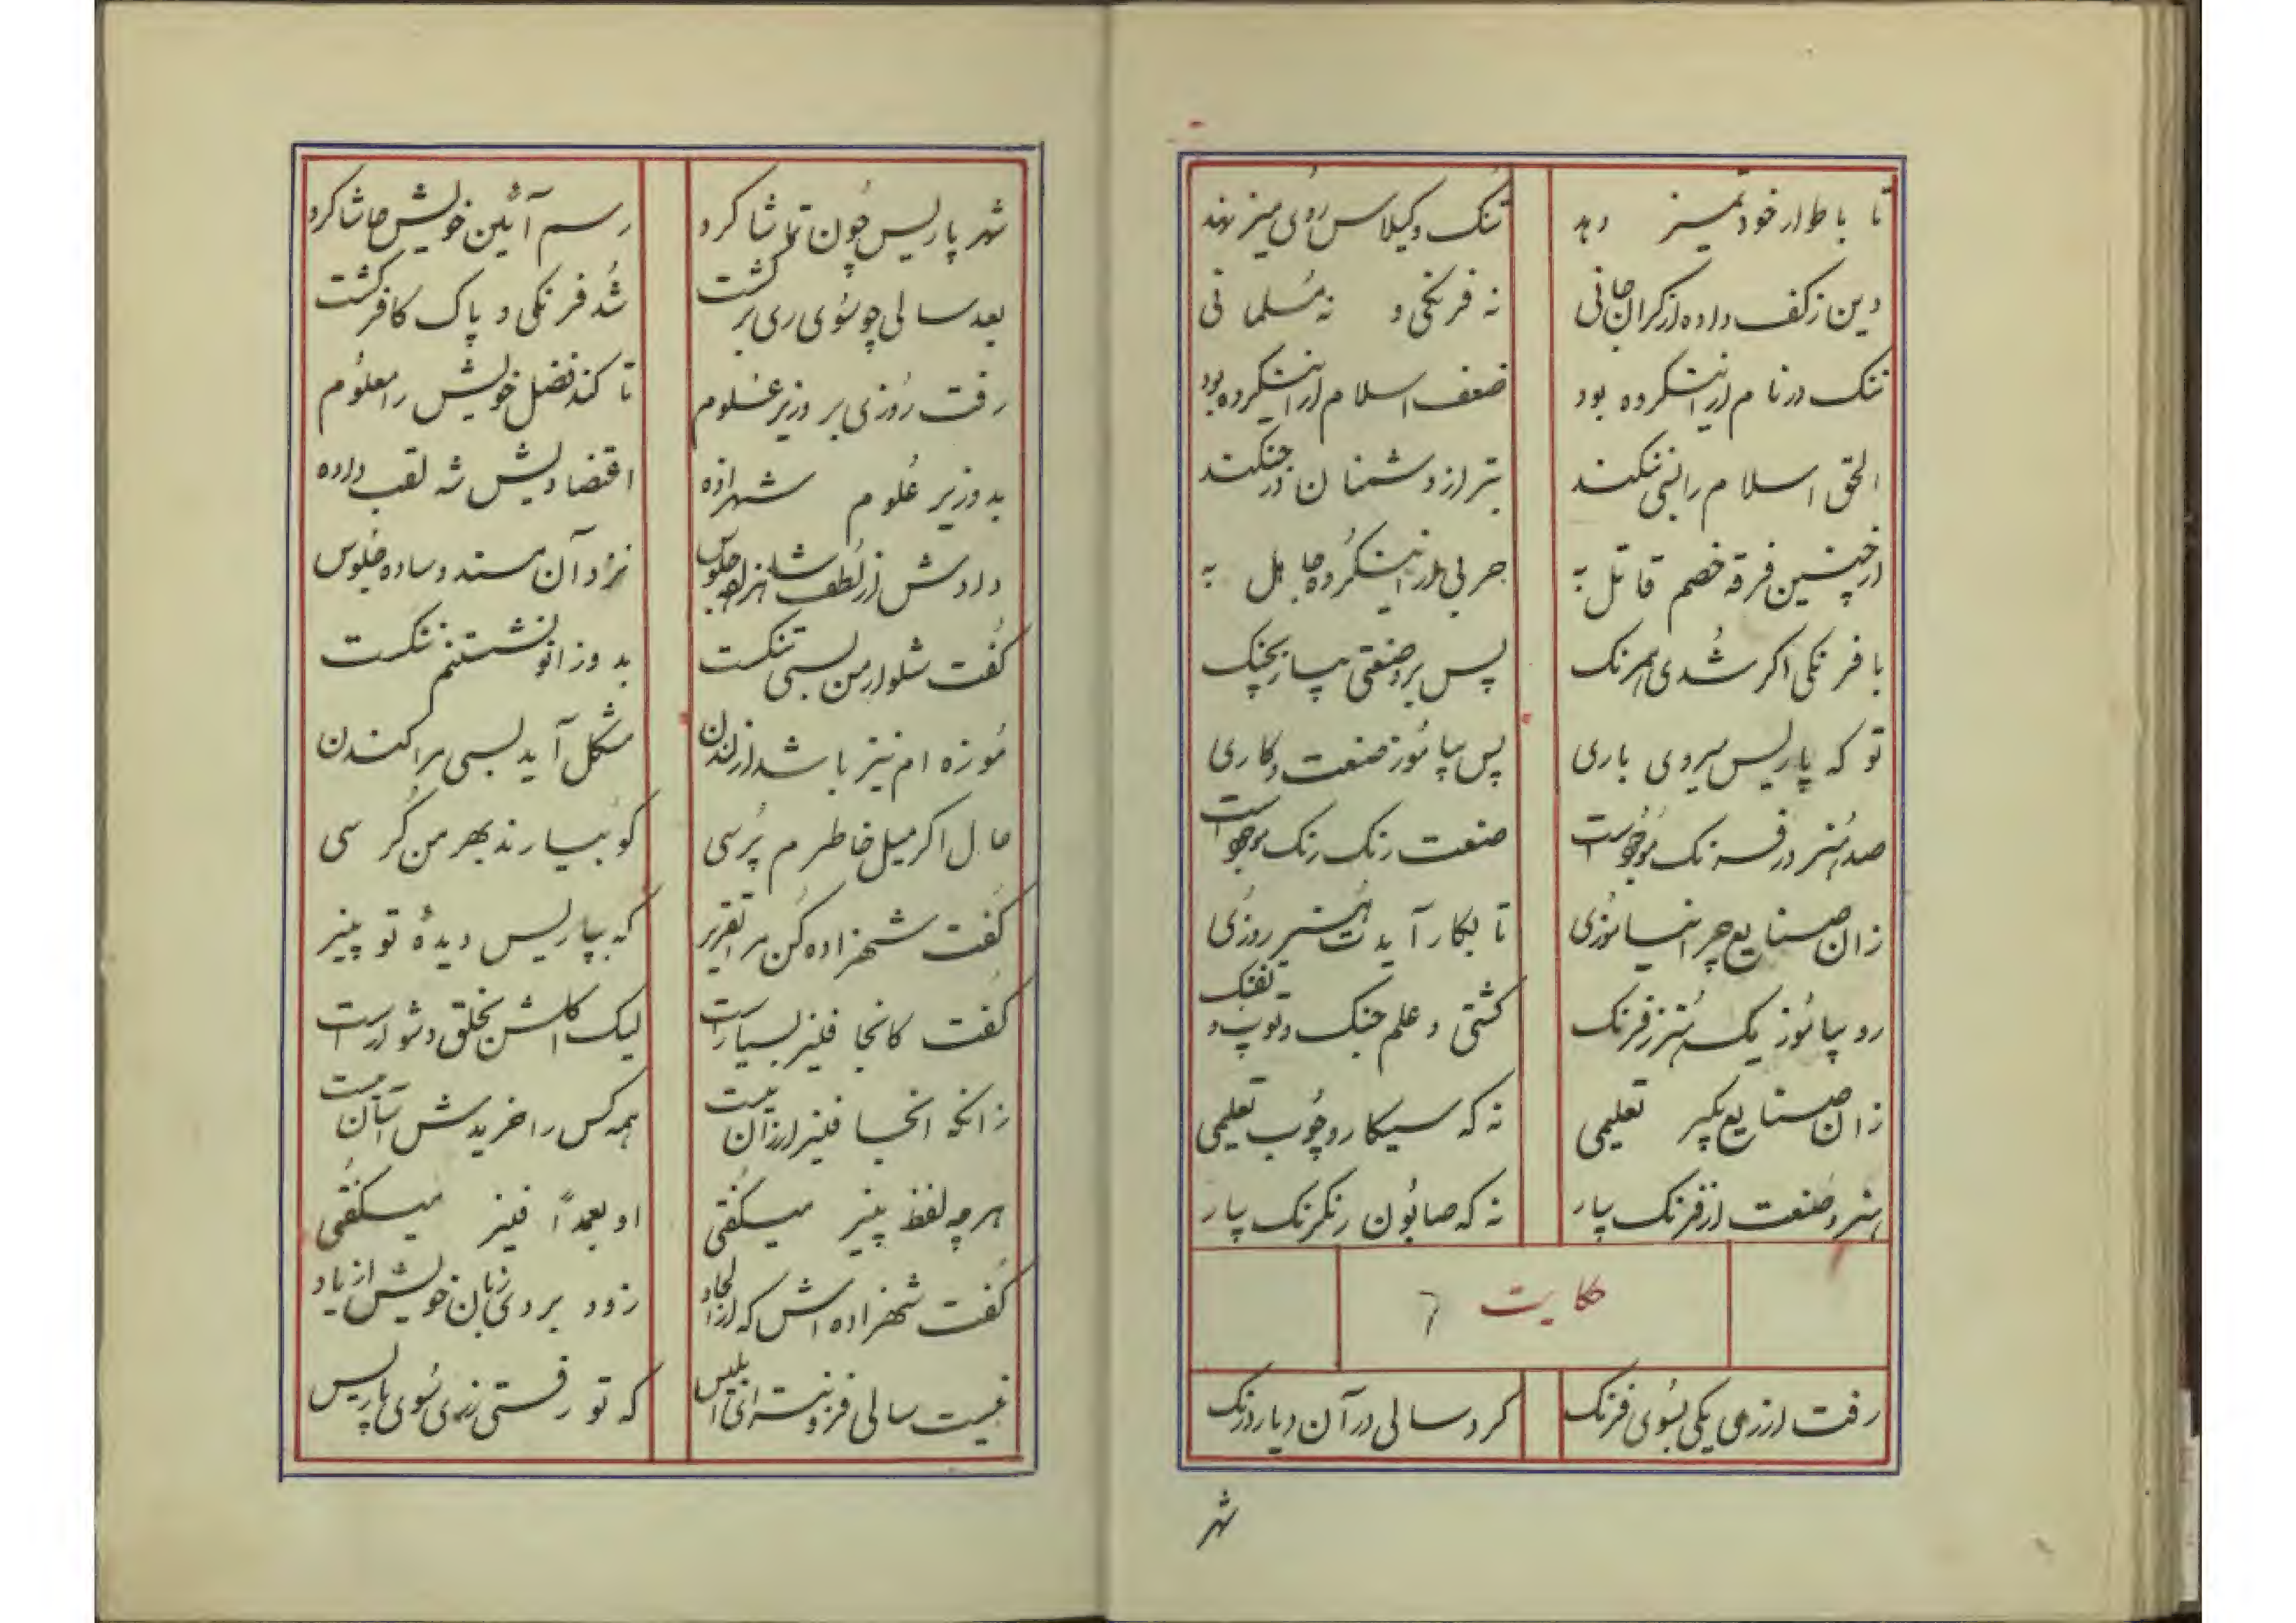 تا باطوار خود تمیز دهد تنک و کیلاس روی میز نهد
دین ز کف داده از کران جانی نه فرنکی و نه مسلمانی
ننک در نام از اینکروه بود ضعف اسلام از اینکروه بود
الحق اسلام را بسی ننکند بتر از دشمنان در جنکند
از چنین فرقه خصم قاتل به حربی از اینکروه جاهل به
با فرنکی اکر شدی همرنک پس برو صنعتی بیار بچنک
تو که پاریس میروی باری پس بیاموز صنعت و کاری
صد هنر در فرنک موجود است صنعت رنک رنک موجود است
زان صنایع چرا نیاموزی تا بکار آیدت هنر روزی
رو بیاموز یک هنر ز فرنک کشتی و علم جنک و توپ و تفنک
زان صنایع بکیر تعلیمی نه که سیکار و چوب تعلیمی
هنر و صنعت از فرنک بیار نه که صابون رنکرنک بیار
حکایت ۶
رفت از ری یکی بسوی فرنک کرد سالی در آن دیار درنک
شهر
شهر پاریس چون تماشا کرد رسم آئین خویش حاشا کرد
بعد سالی چو سوی ری برکشت شد فرنکی و پاک کافر کشت
رفت روزی بر وزیر علوم تا کند فضل خویش را معلوم
بد وزیر علوم شهزاده اقتضادیش شه لقب داده
دادش از لطف شاهزاده جلوس نزد آن مسند و ساده جلوس
کفت شلوار من بسی تنکست بدو زانو نشستنم ننکست
موزه ام نیز باشد از لندن مشکل آید بسی مرا کندن
حال اکر میل خاطرم پرسی کو بیارند بهر من کرسی
کفت شهزاده کن مرا تقریر که بپاریس دیدهٔ تو پنیر
کفت کانجا فنیز بسیار است لیک اکلش بخلق دشوار است
زانکه انجا فنیز ارزان نیست همه کس را خریدش آسان نیست
هر چه لفظ پنیر میکفتی او بعمداً فنیز میکفتی
کفت شهزاده اش که از الحاد زود بردی زبان خویش از یاد
نیست سالی فزونتر ای ابلیس که تو رفستی ز ری سوی پاریس